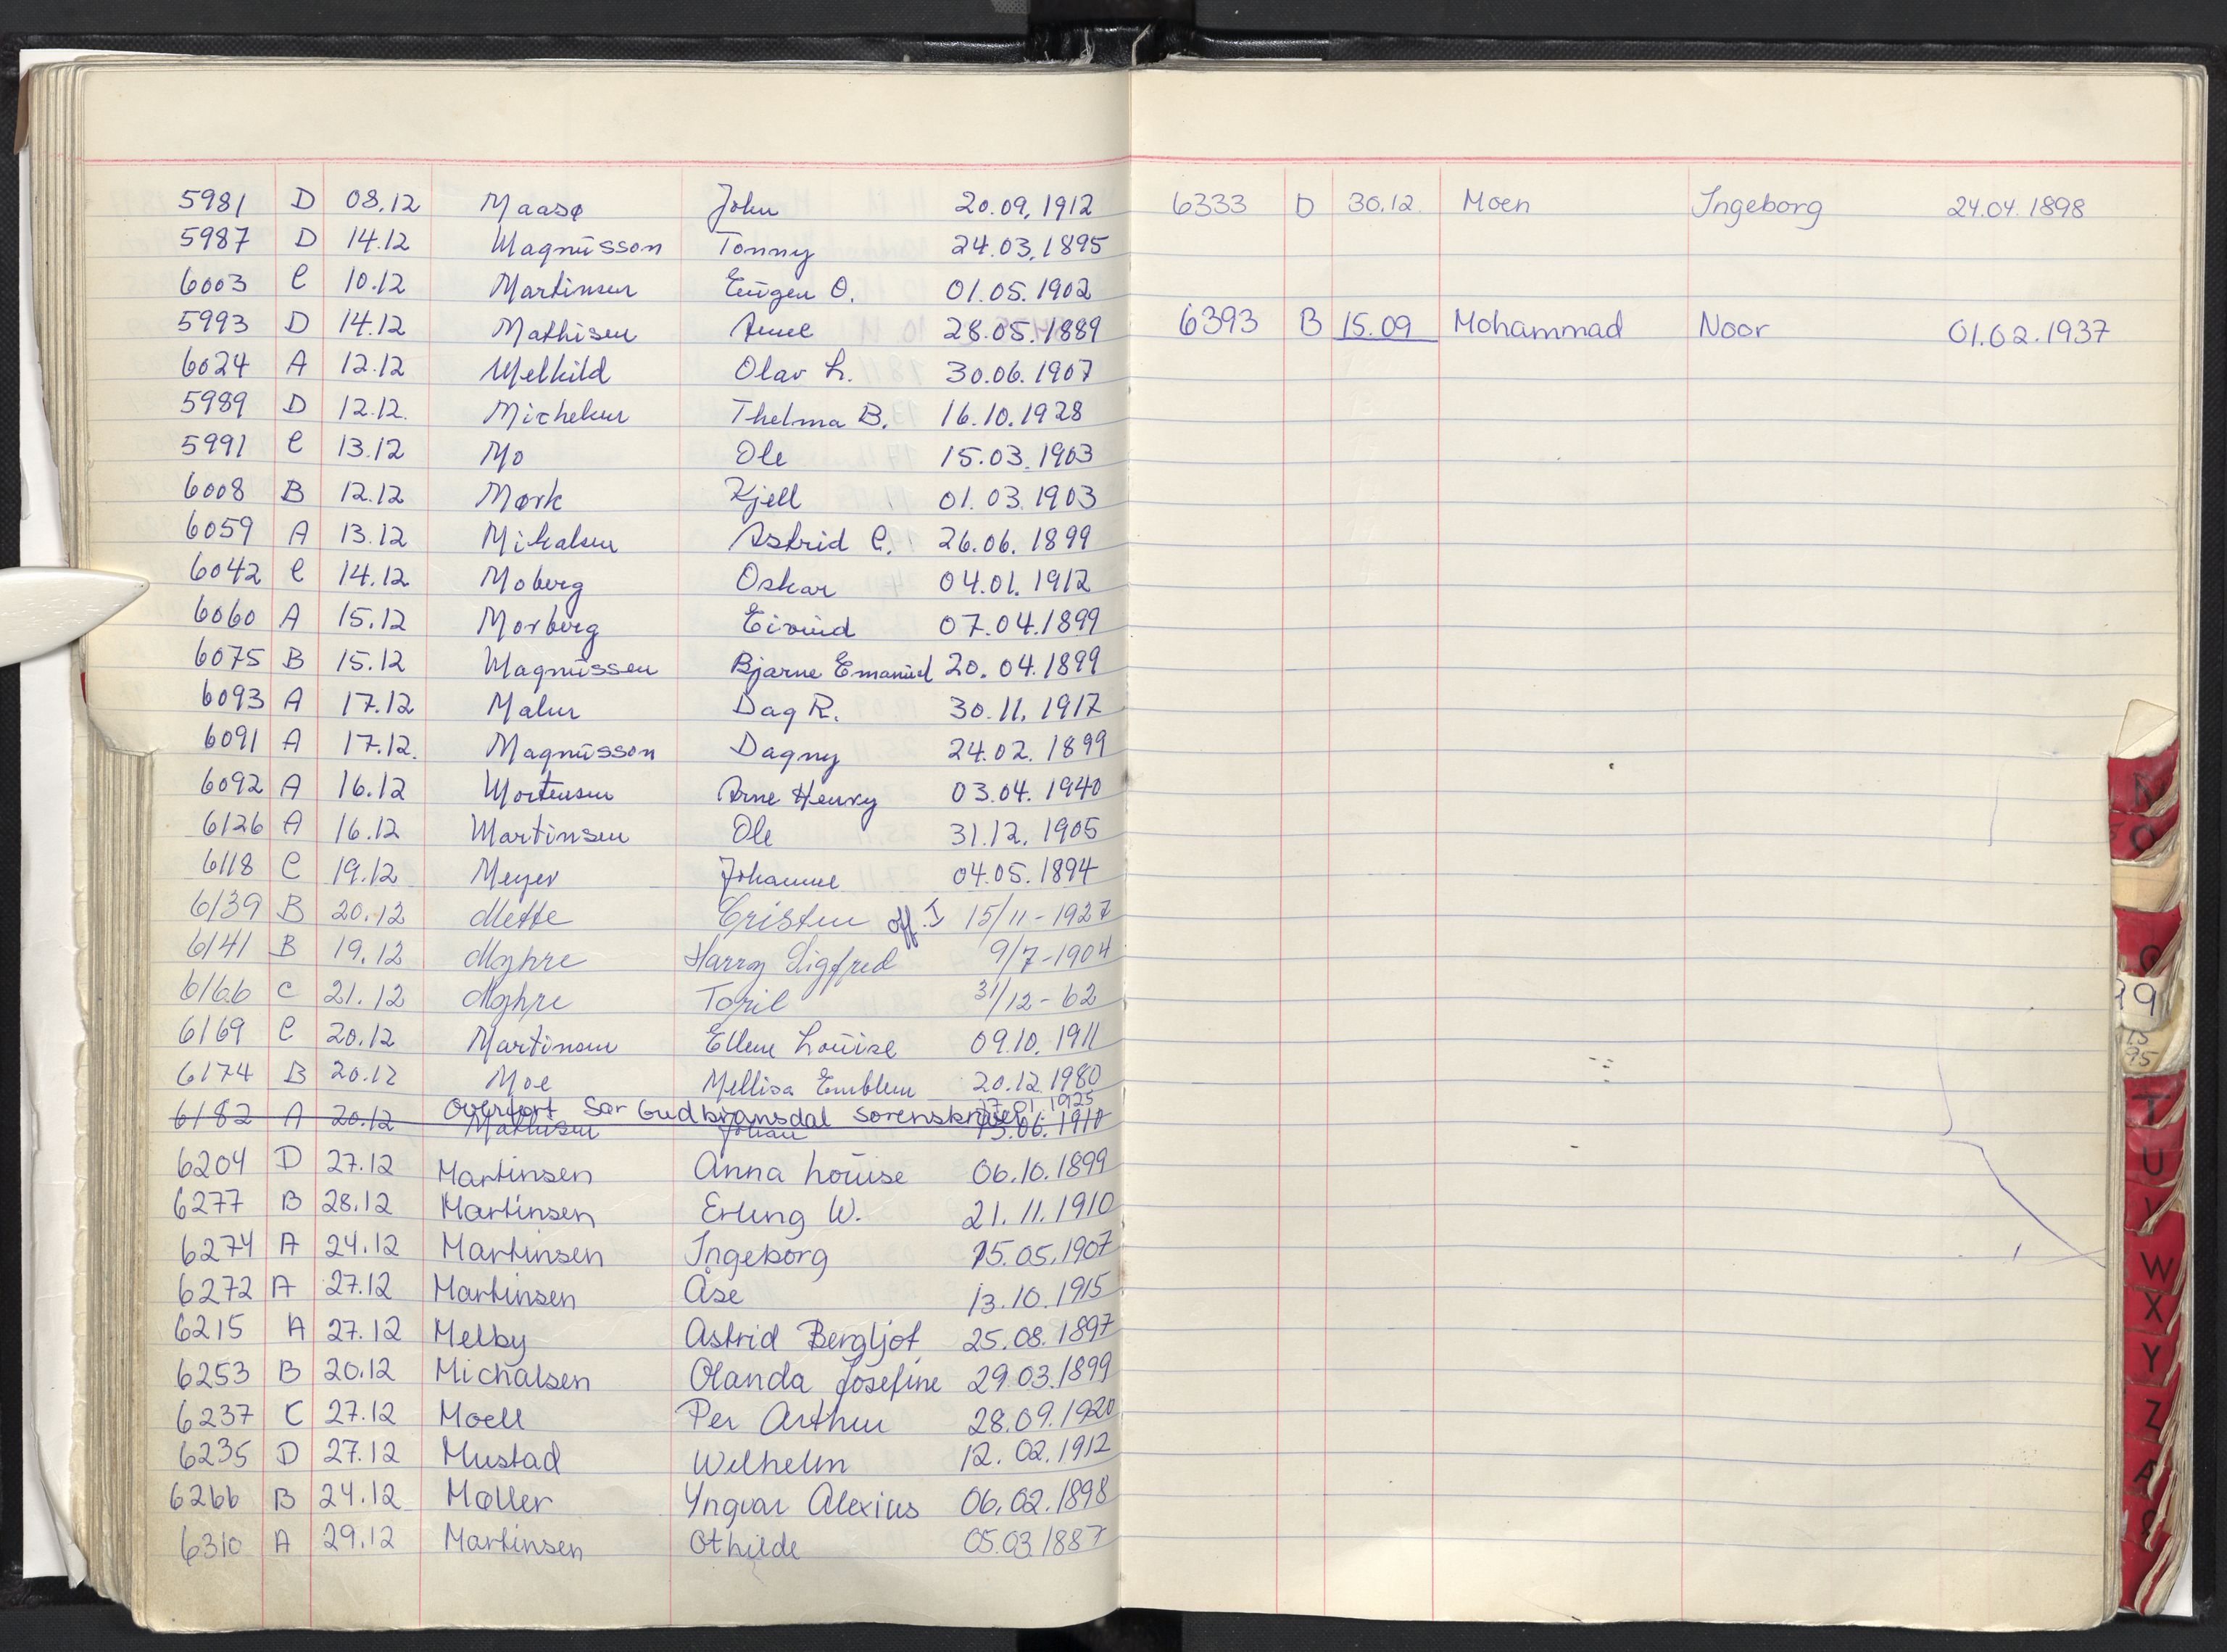 5981 D 08.12 Maasø John 20.09.1912
5987 D 14.12 Magnusson Tonny 24.03.1895
6003 C 10.12 Martinsen Eugen O. 01.05.1902
5993 D 14.12 Mathisen Anne 28.05.1889
6024 A 12.12 Melkild Olav L. 30.06.1907
5989 D 12.12. Michelsen Thelma B. 16.10.1928
5991 C 13.12 Mo Ole 15.03.1903
6008 B 12.12 Mørk Kjell 01.03.1903
6059 A 13.12 Mikalsen Astrid C. 26.06.1899
6042 C 14.12 Moberg Oskar 04.01.1912
6060 A 15.12 Morberg Eivind 07.04.1899
6075 B 15.12 Magnussen Bjarne Emanuel 20.04.1899
6093 A 17.12 Malm Dag R. 30.11.1917
6091 A 17.12. Magnusson Dagny 24.02.1899
6092 A 16.12 Mortensen Arne Henry 03.04.1940
6126 A 16.12 Martinsen Ole 31.12.1905
6118 C 19.12 Meyer Johanne 04.05.1894
6139 B 20.12 Mette Cristen off. J 15/11-1927
6141 B 19.12 Myhre Harry Sigfred 9/7-1904
6166 C 21.12 Myhre Toril 31/12-62
6169 C 20.12 Martinsen Ellen Louise 09.10.1911
6174 B 20.12 Moe Mellisa Emblem 20.12.1980
17.01.1925
Overført Sør Gudbransdal sorenskriver
6182 A 20.12 Mathisen Johan 13.06.1910
6204 D 27.12 Martinsen Anna Louise 06.10.1899
6277 B 28.12 Martinsen Erling W. 21.11.1910
6274 A 24.12 Martinsen Ingeborg 15.05.1907
6272 A 27.12 Martinsen Åse 13.10.1915
6215 A 27.12 Melby Astrid Bergljot 25.08.1897
6253 B 20.12 Michalsen Olanda Josefine 29.03.1899
6237 C 27.12 Moell Per Arthur 28.09.1920
6235 D 27.12 Mustad Wilhelm 12.02.1912
6266 B 24.12 Møller Yngvar Alexius 06.02.1898
6310 A 29.12 Martinsen Othilde 05.03.1887
6333 D 30.12 Moen Ingeborg 24.04.1898
6393 B 15.09 Mohammad Noor 01.02.1937
N
O
T
U
V
W
X
Y
Z